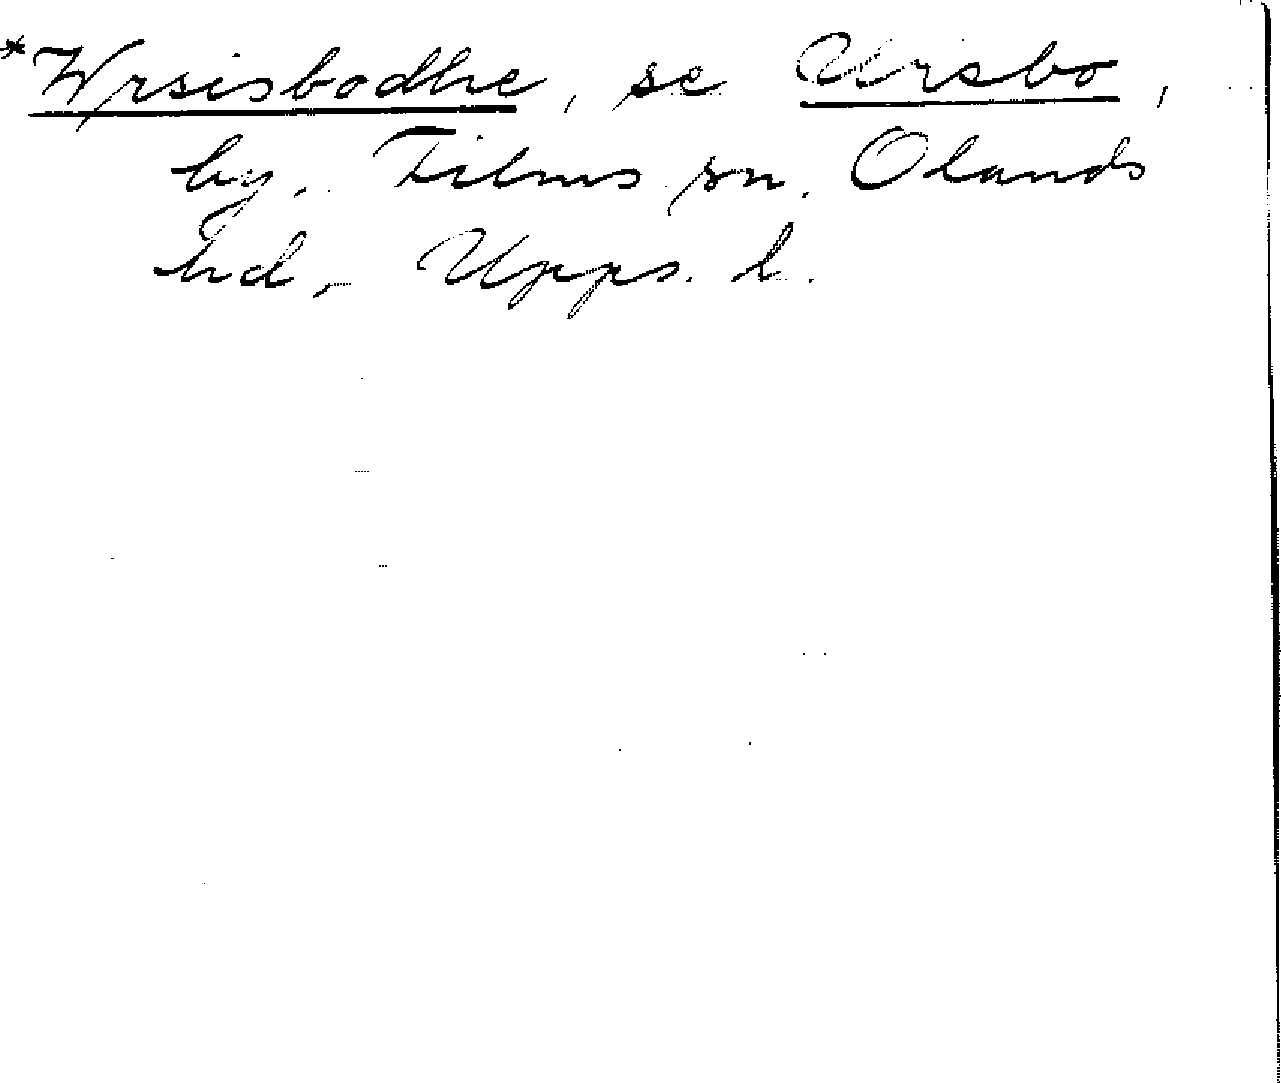 *Wrsisbodhe, se Ursbo,
by, Films sn, Olands
hd, Upps. l.